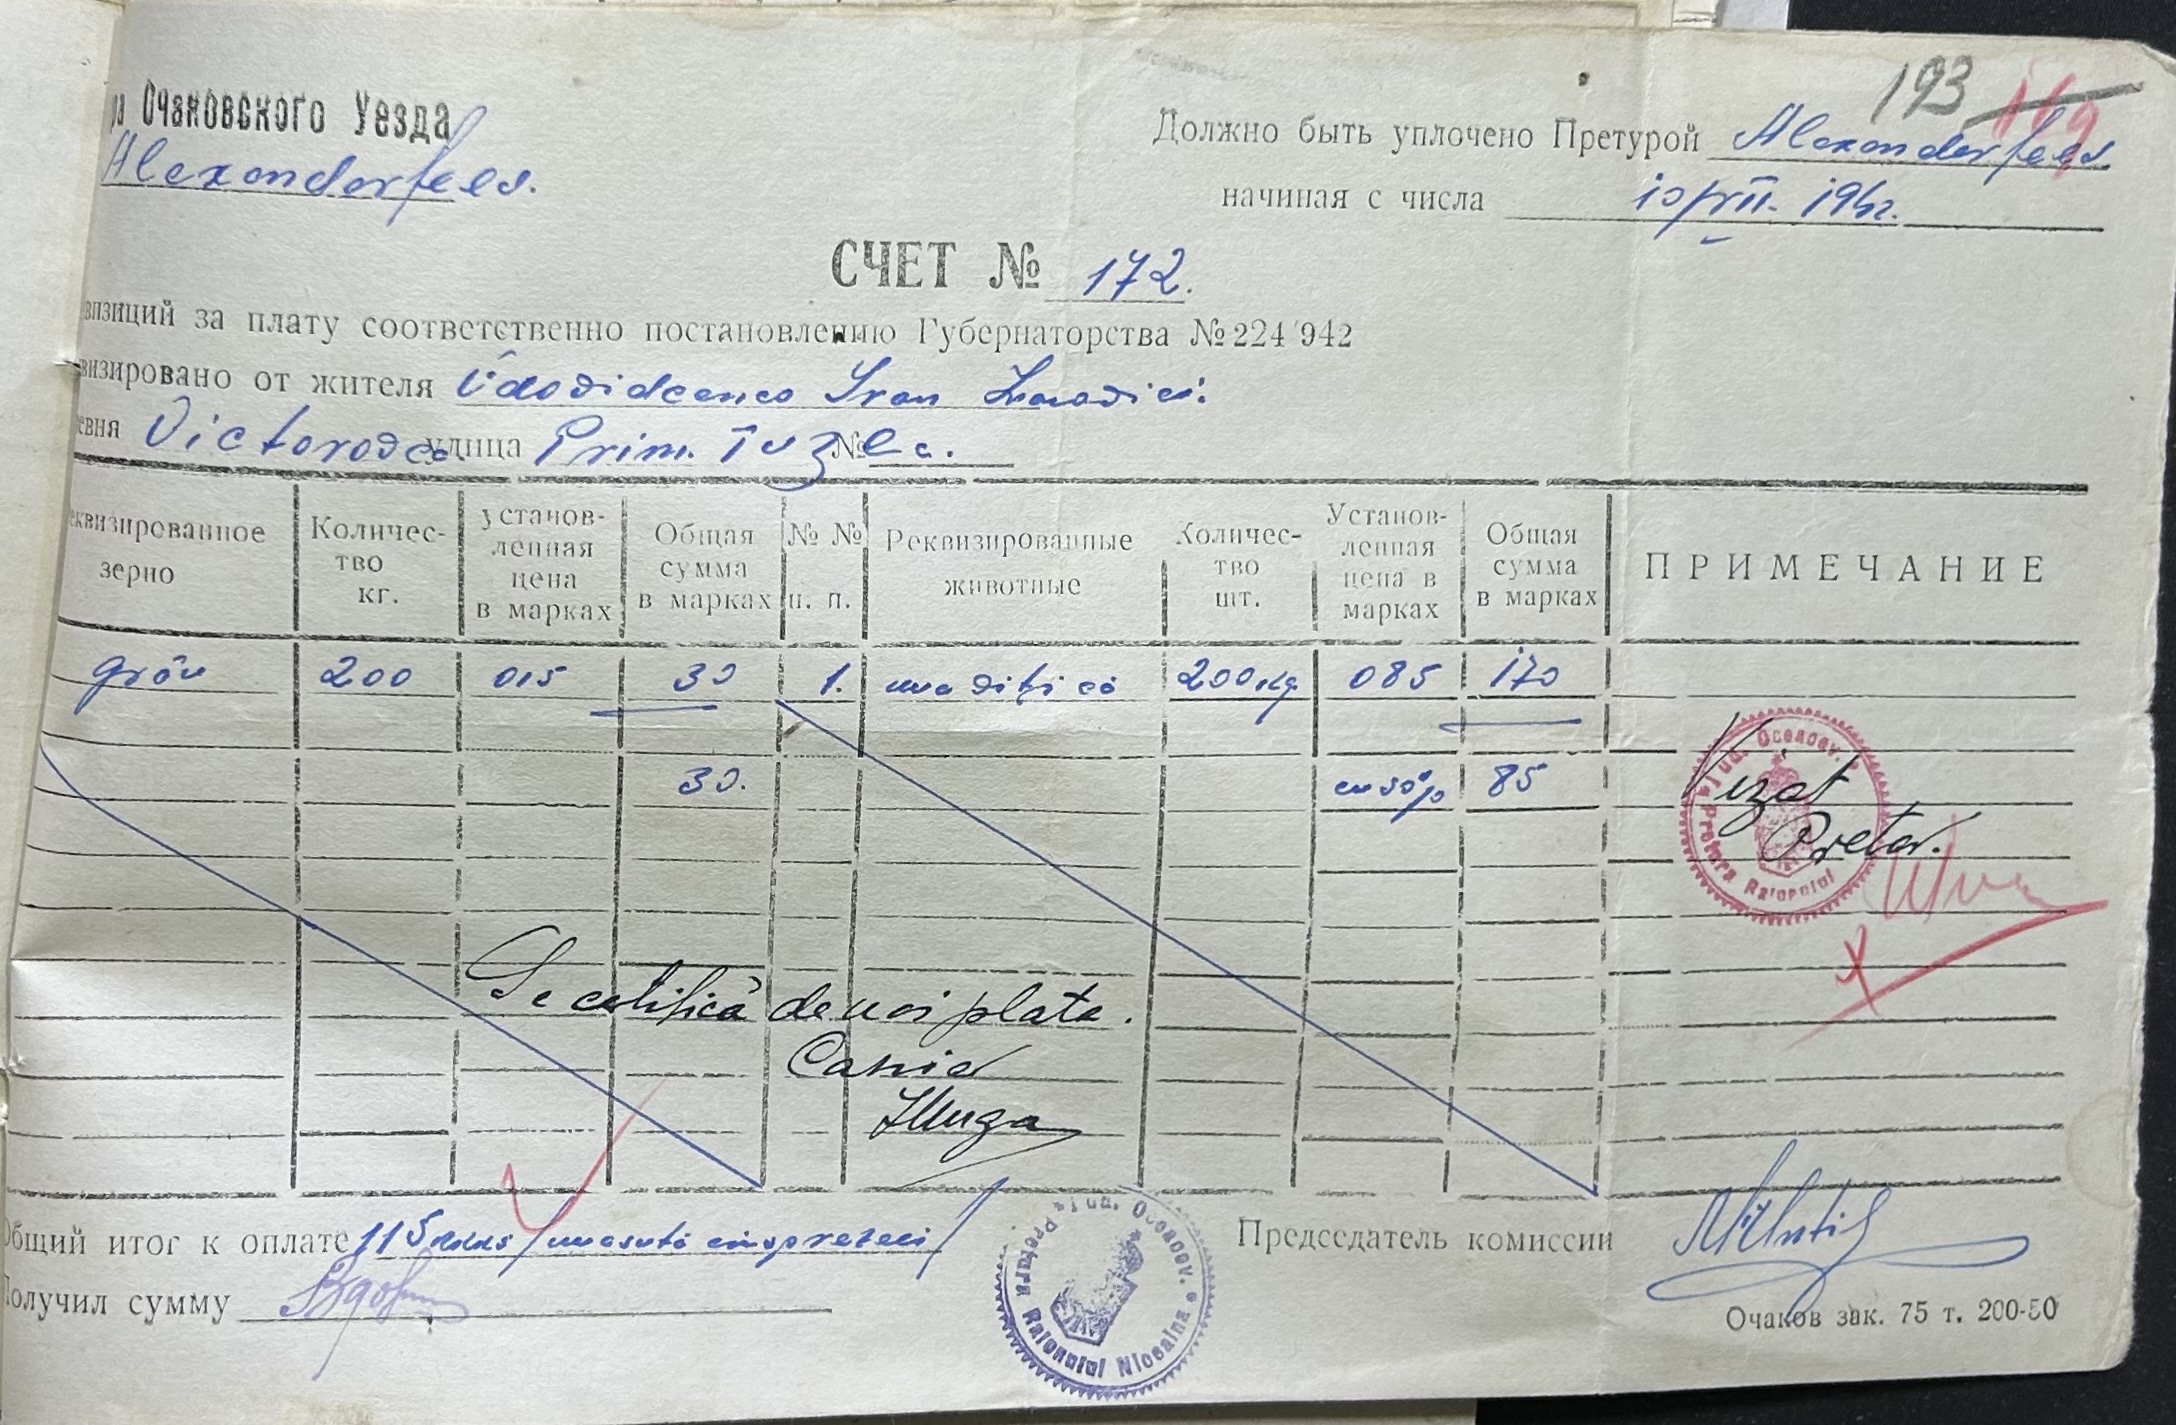 Очаковского Уезда
Alexanderfeld.
193 169
Должно быть уплочено Претурой Alexanderfeld.
начиная с числа 10/VII. 1942.
СЧЕТ № 172.
визиций за плату соответственно постановлению Губернаторства № 224/942
визировано от жителя Ivan
евня улица Prim. Tuzla. №
еквизированное зерно
Количес-тво кг.
установ-ленная цена в марках
Общая сумма в марках
№ № п. п.
Реквизированные животные
Количес-тво шт.
Установ-ленная цена в марках
Общая сумма в марках
ПРИМЕЧАНИЕ
grâu 200 015 30 1. 200 kg. 085 170
30. cu 50% 85
Vizat
Pretor.
Jud. Oceacov. Pretura Raionului
Se certifică de noi plata.
Casier
Общий итог к оплате 115
Получил сумму
Председатель комиссии
Jud. Oceacov. Pretura Raionului
Очаков зак. 75 т. 200-50